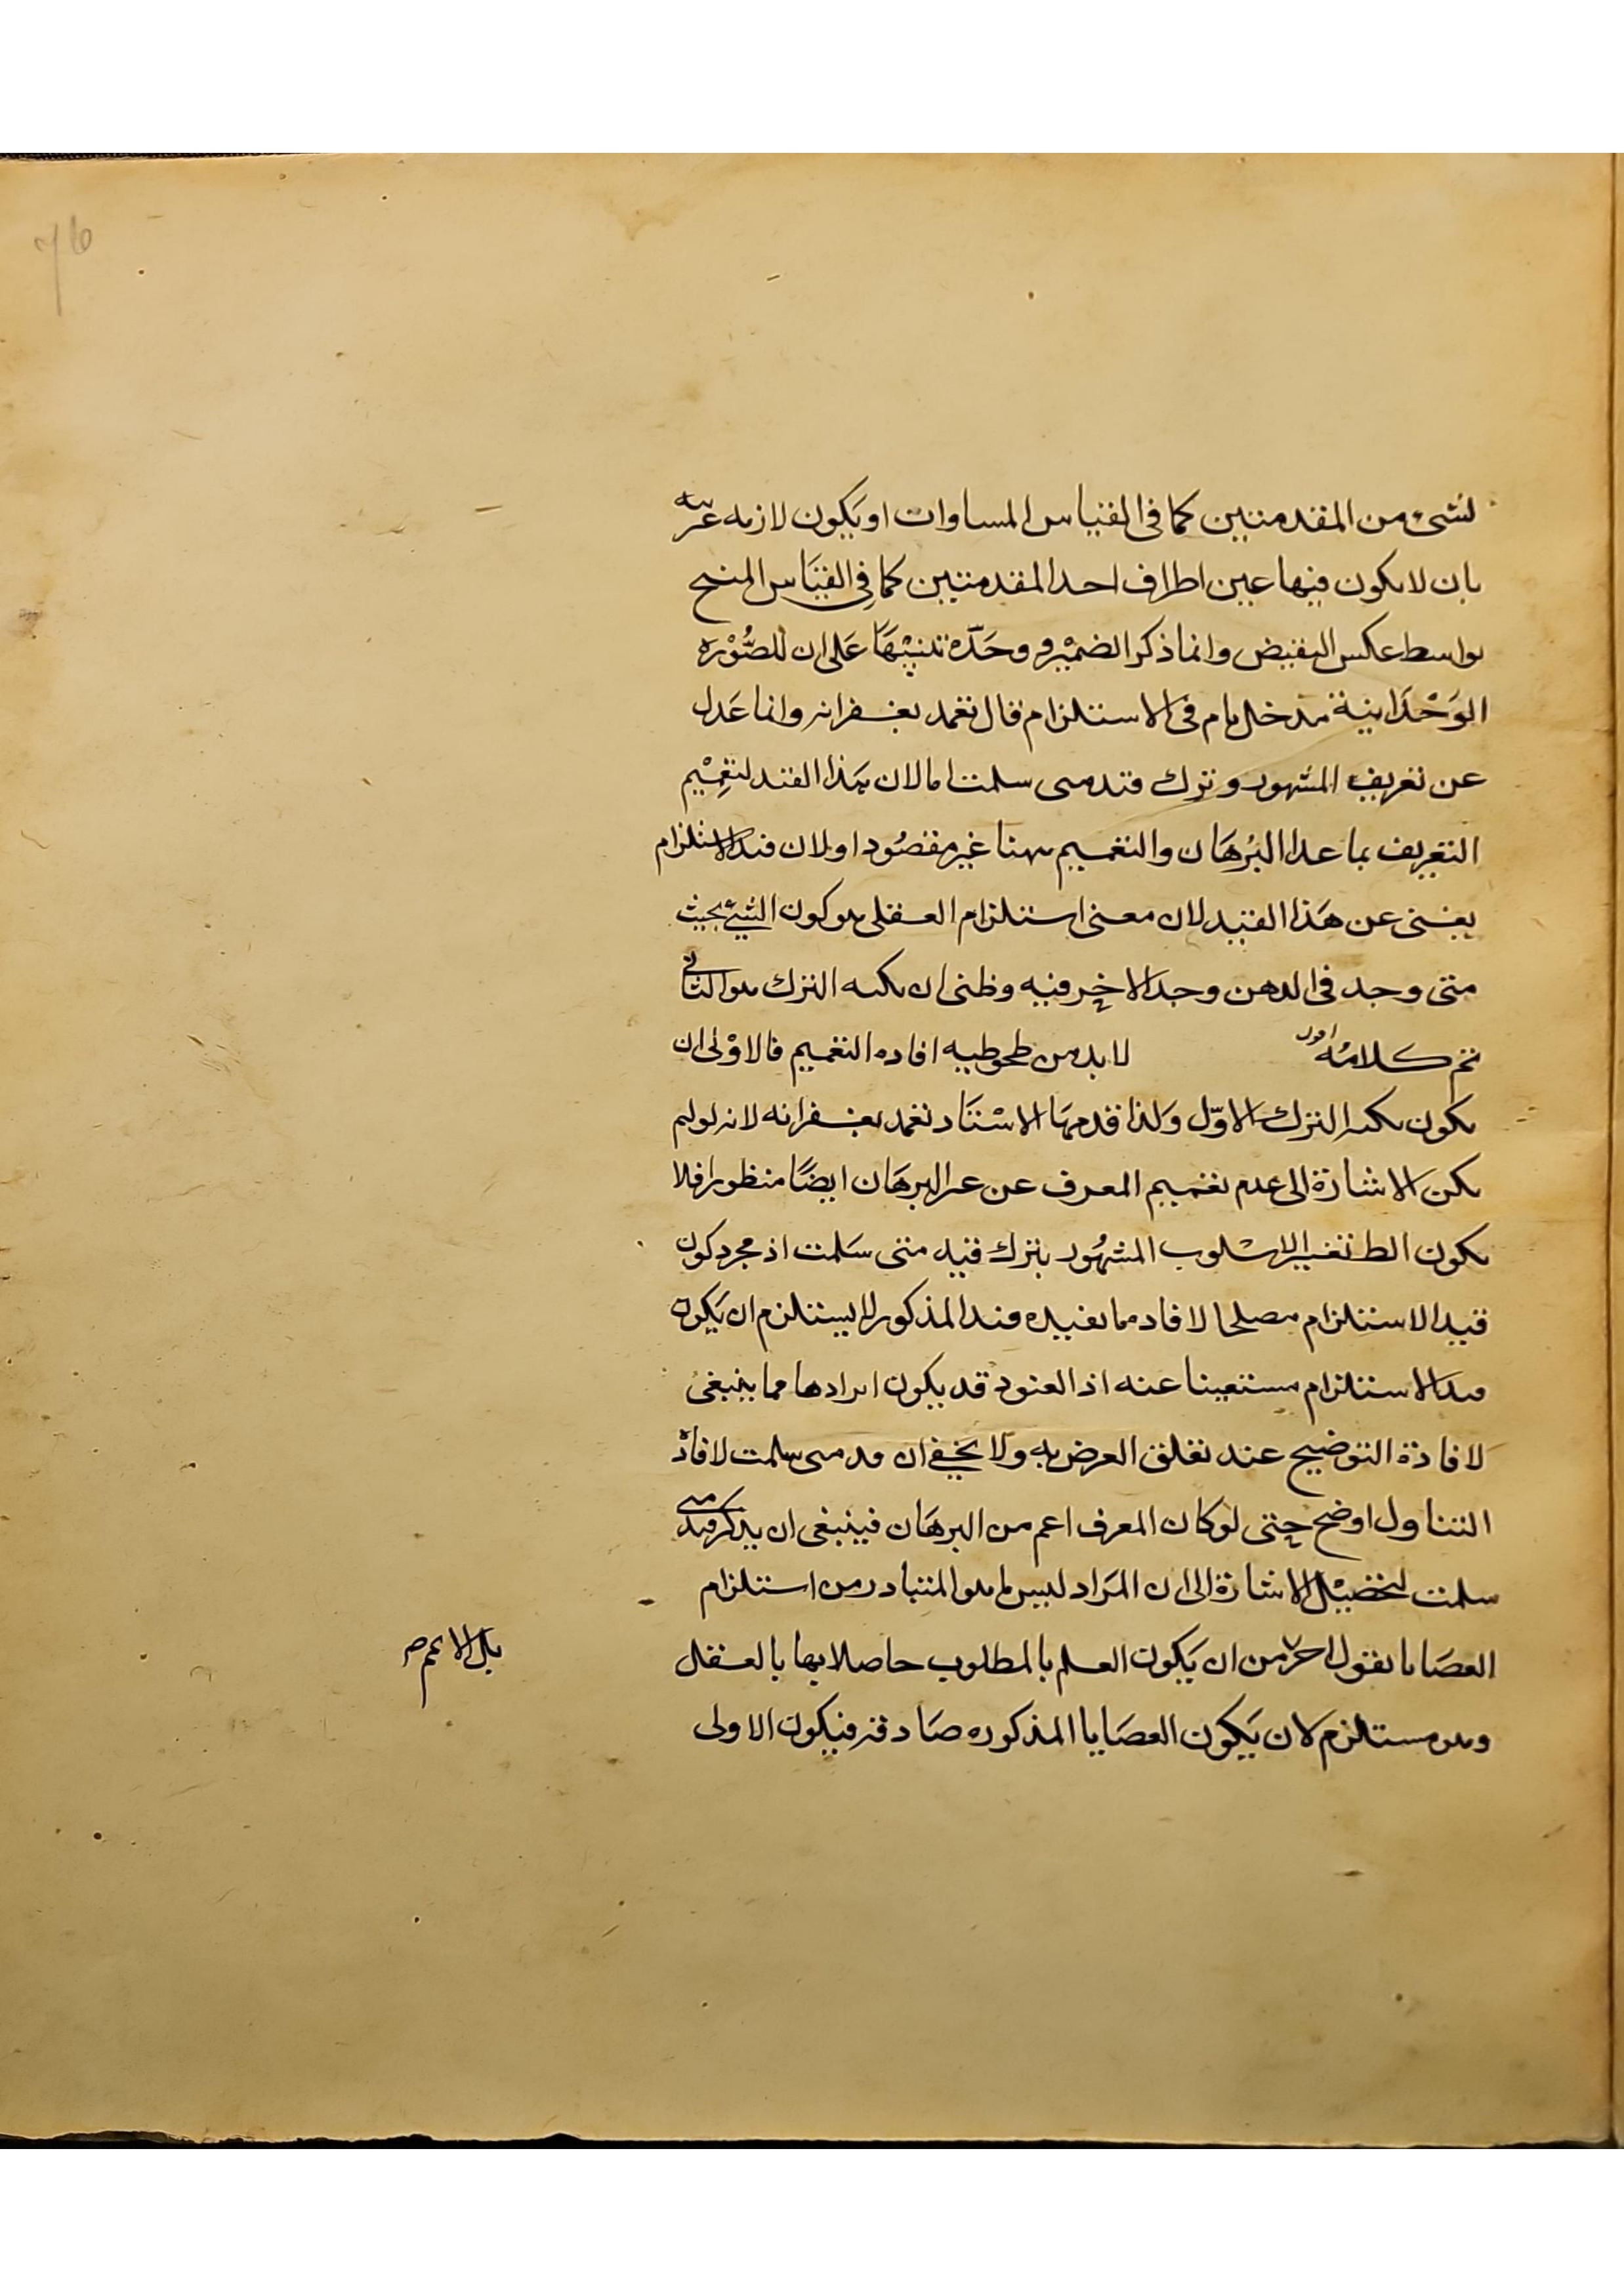 76
لشىء من المقدمتين كما فى القياس المساوات او يكون لازمه غريبه
بان لا يكون فيها عين اطراف احد المقدمتين كما فى القياس المنتج
بواسط عكس النقيض وانما ذكر الضمير وحده تنبيها على ان للصورة
الوحدانية مدخل تام فى الاستلزام قال تغمد بغفرانه وانما عدل
عن تعريف المشهور وترك قيد متى سلمت اما لان هذا القيد لتعميم
التعريف بما عدا البرهان والتعميم ههنا غير مقصود او لان قيد الاستلزام
يغنى عن هذا القيد لان معنى استلزام العقلى هو كون الشىء بحيث
متى وجد فى الذهن وجد الاخر فيه وظنى ان نكته الترك هو الثانى
تم كلامه اقول لابد من افاده التعميم فالاولى ان
يكون نكته الترك الاول ولذا قدمها الاستاد تغمد بغفرانه لانه لو لم
يكن الاشارة الى عدم تعميم المعرف عن البرهان ايضا منظورا فلا
يكون الط تغيير الاسلوب المشهور بترك قيد متى سلمت اذ مجرد كون
قيد الاستلزام مصلحا لافاد ما يفيده قيد المذكور لا يستلزم ان يكون
قيد الاستلزام عنه اذ القيود قد يكون ايرادها مما ينبغى
لافادة التوضيح عند تعلق الغرض به ولا يخفى ان قيد متى سلمت لافادة
التناول اوضح حتى لو كان المعرف اعم من البرهان فينبغى ان يذكر قيد متى
سلمت لتحصيل الاشارة الى ان المراد ليس ما هو المتبادر من استلزام
القضايا لقول اخر من ان يكون العلم بالمطلوب حاصلا بها بالعقل
بل الاعم صح
وهو مستلزم لان يكون القضايا المذكوره صادقه فيكون الاولى